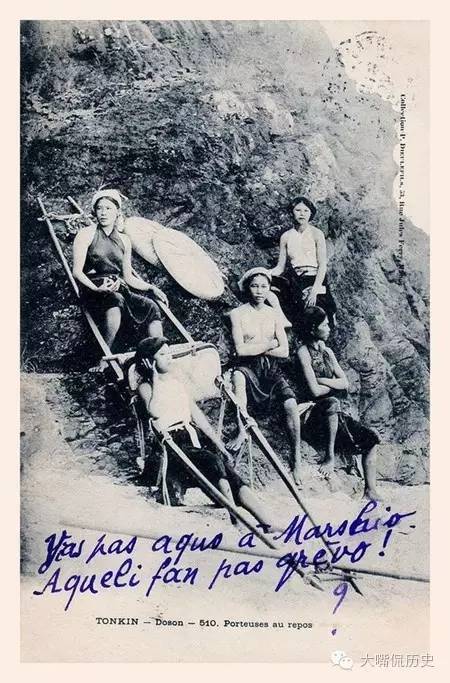 Collection P. DIEULEFILS, 53, Rue Jules Ferry
Y'as pas aquo à Marsihio.
Aqueli fan pas grèvo !
?
TONKIN — Doson — 510. Porteuses au repos
大嘴侃历史